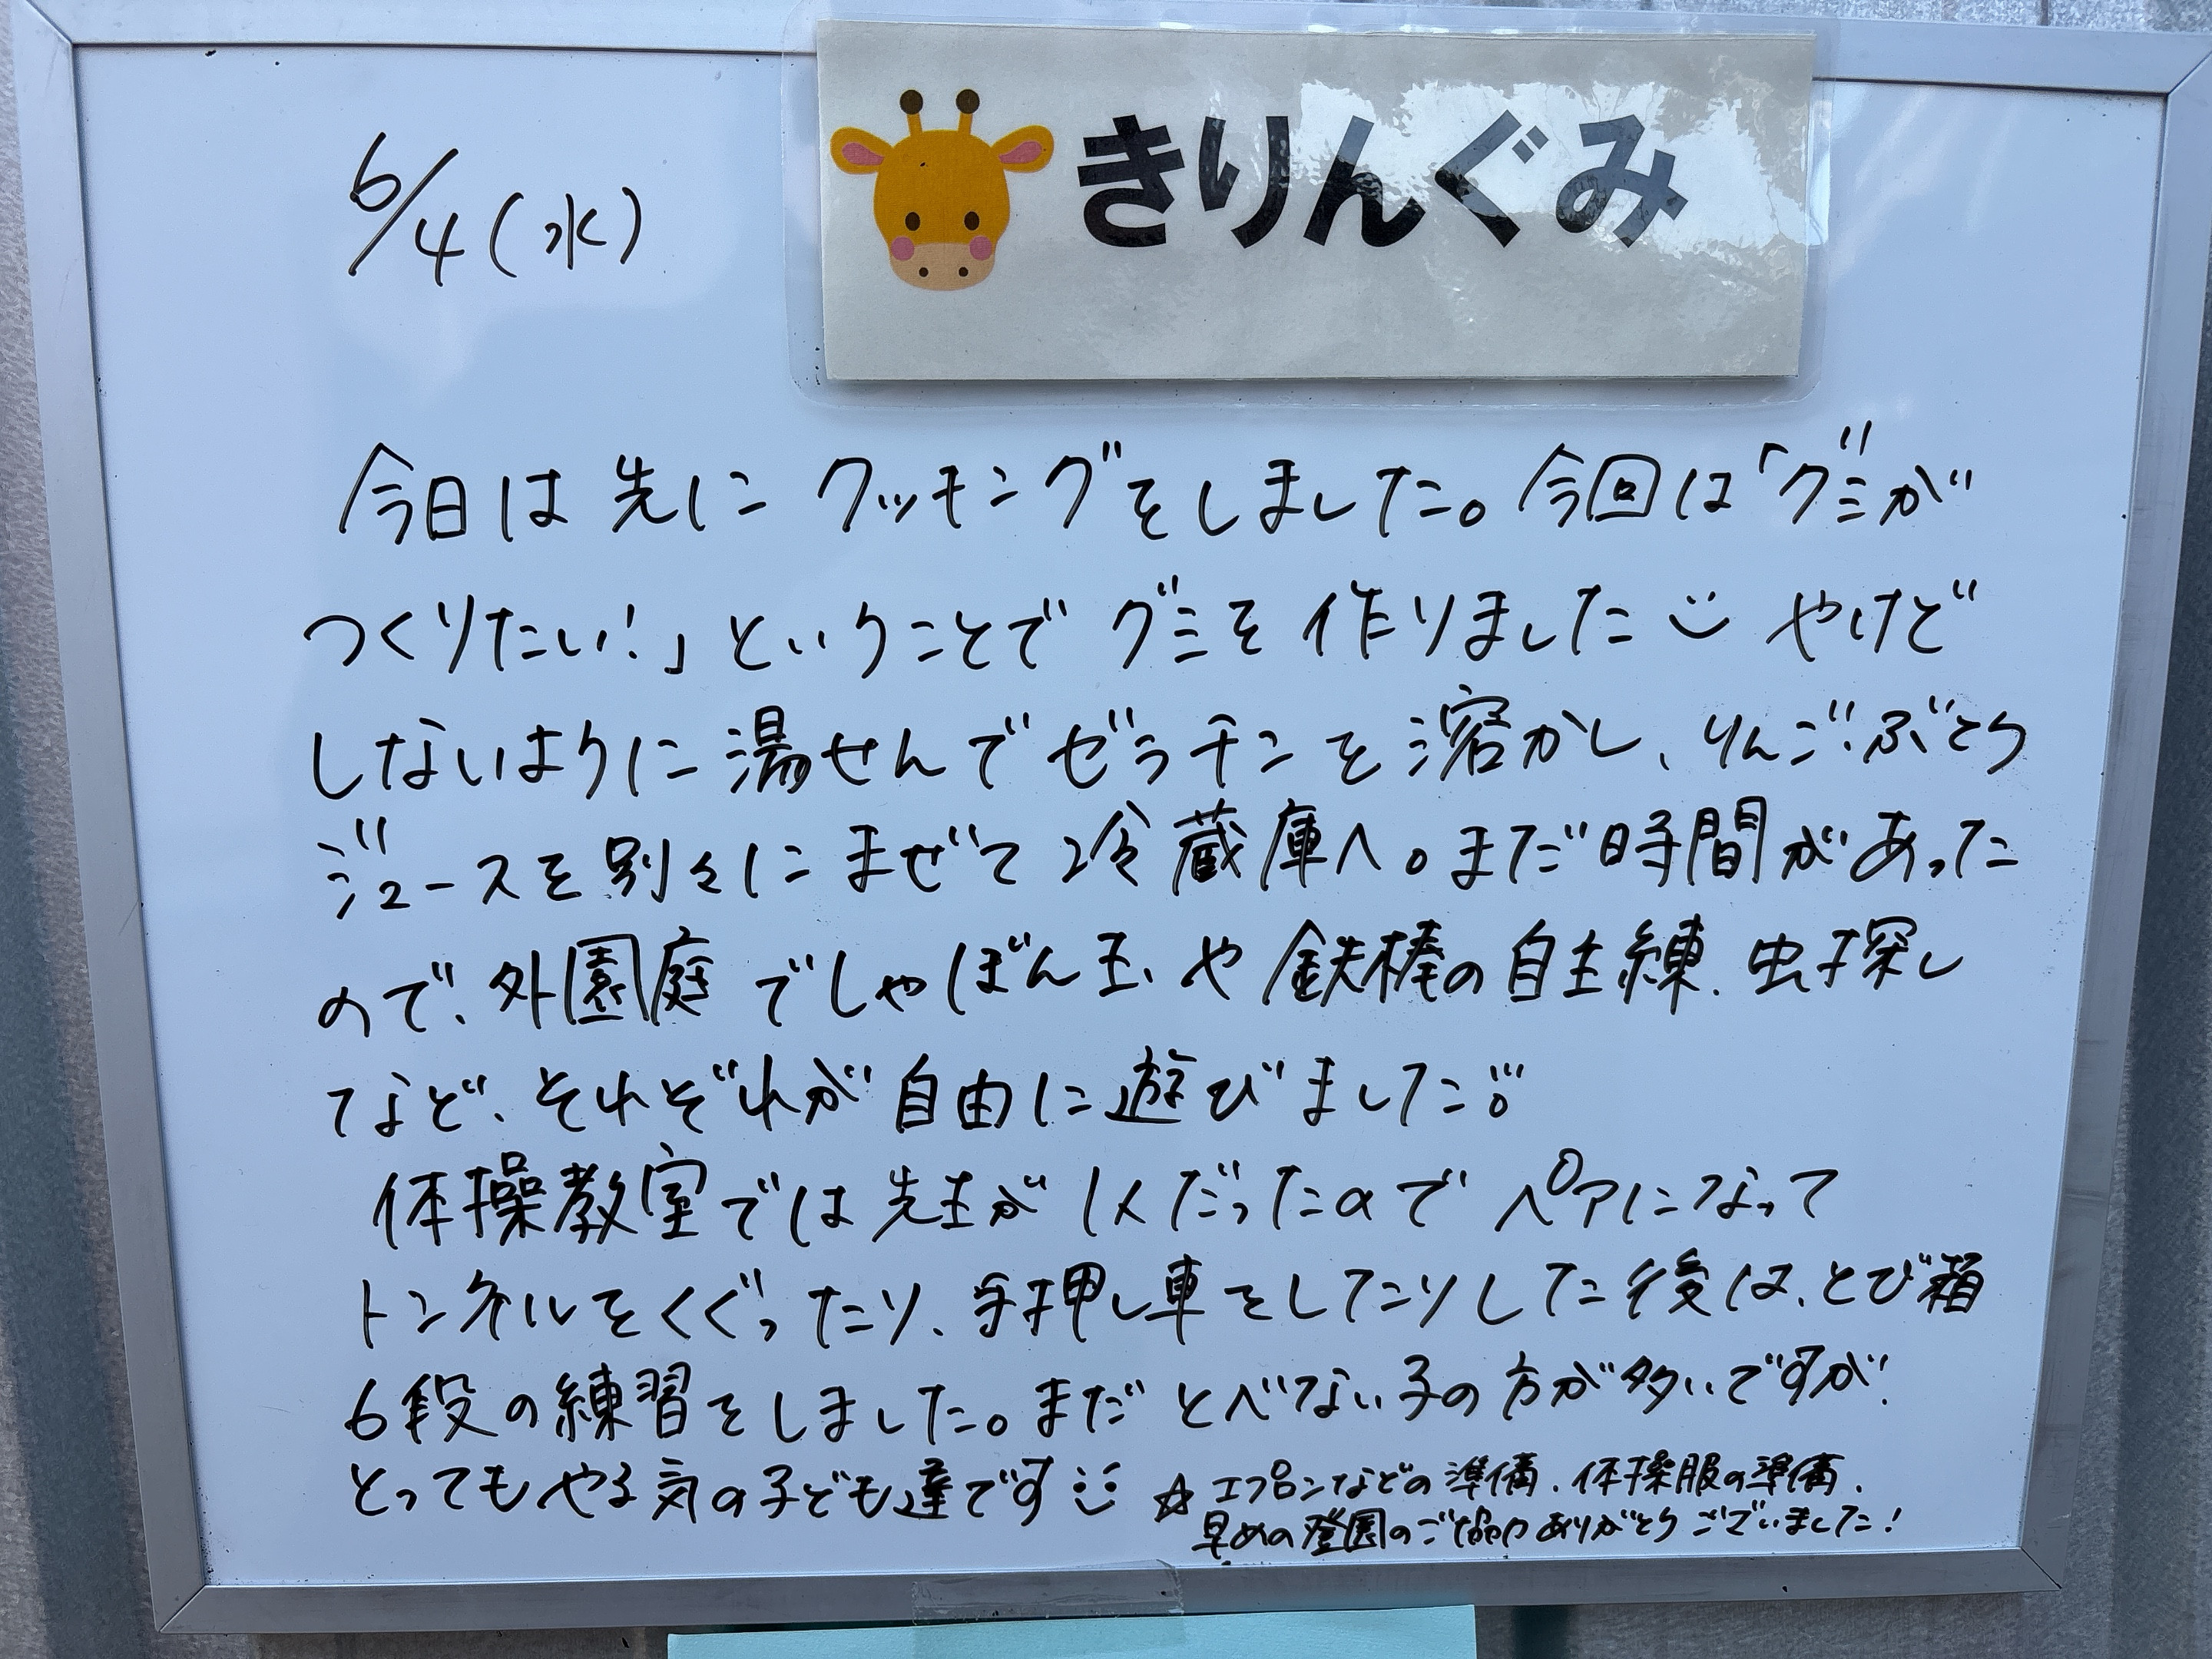 きりんぐみ
6/4(水)
今日は先にクッキングをしました。今回は「グミが
つくりたい!」ということでグミを作りました やけど
しないように湯せんでゼラチンを溶かし、りんご・ぶどう
ジュースを別々にまぜて冷蔵庫へ。まだ時間があった
ので、外園庭でしゃぼん玉や鉄棒の自主練、虫探し
など、それぞれが自由に遊びました
体操教室では先生が1人だったのでペアになって
トンネルをくぐったり、手押し車をしたりした後は、とび箱
6段の練習をしました。まだとべない子の方が多いですが、
とってもやる気の子ども達です
☆エプロンなどの準備、体操服の準備、
早めの登園のご協力ありがとうございました!